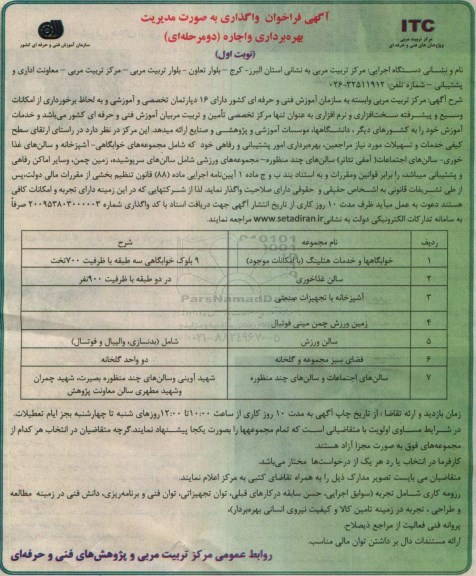 آگهی فراخوان واگذاری به صورت مدیریت
بهره‌برداری واجاره (دومرحله‌ای)
(نوبت اول)
ITC
مرکز تربیت مربی
و پژوهش های فنی و حرفه ای
سازمان آموزش فنی و حرفه ای کشور
نام و نشانی دستگاه اجرایی: مرکز تربیت مربی به نشانی استان البرز- کرج – بلوار تعاون - بلوار تربیت مربی – مرکز تربیت مربی – معاونت اداری و
پشتیبانی – شماره تلفن: ۳۲۵۱۱۹۱۲-۰۲۶
شرح آگهی: مرکز تربیت مربی وابسته به سازمان آموزش فنی و حرفه ای کشور دارای ۱۶ دپارتمان تخصصی و آموزشی و به لحاظ برخورداری از امکانات
وسیع و پیشرفته سخت‌افزاری و نرم افزاری به عنوان تنها مرکز تخصصی تأمین و تربیت مربیان آموزش فنی و حرفه ای کشور می‌باشد و خدمات
آموزش خود را به کشورهای دیگر ، دانشگاهها، موسسات آموزشی و پژوهشی و صنایع ارائه میدهد. این مرکز در نظر دارد در راستای ارتقای سطح
کیفی خدمات و تسهیلات مورد نیاز مراجعین، بهره‌برداری امور پشتیبانی و رفاهی خود که شامل مجموعه‌های خوابگاهی- آشپزخانه و سالن‌های غذا
خوری- سالن‌های اجتماعات( آمفی تئاتر) سالن‌های چند منظوره– مجموعه‌های ورزشی شامل سالن‌های سرپوشیده، زمین چمن، وسایر اماکن رفاهی
و پشتیبانی میباشد، را برابر قوانین ومقررات و به استناد بند ب و ج ماده ۱ آیین‌نامه اجرایی ماده (۸۸) قانون تنظیم بخشی از مقررات مالی دولت،پس
از طی تشریفات قانونی به اشخاص حقیقی و حقوقی دارای صلاحیت واگذار نماید. لذا از شرکتهایی که در این زمینه دارای تجربه و امکانات کافی
هستند دعوت به عمل میآید ظرف مدت ۱۰ روز کاری از تاریخ انتشار آگهی جهت دریافت اسناد با کد واگذاری شماره ۲۰۰۹۵۳۸۰۳۰۰۰۰۰۳
به سامانه تدارکات الکترونیکی دولت به نشانی www.setadiran.ir مراجعه نمایند.
ردیف نام مجموعه شرح
۱ خوابگاهها و خدمات هتلینگ (با امکانات موجود) ۹ بلوک خوابگاهی سه طبقه با ظرفیت ۷۰۰تخت
۲ سالن غذاخوری در دو طبقه با ظرفیت ۹۰۰نفر
۳ آشپزخانه با تجهیزات صنعتی
۴ زمین ورزش چمن مینی فوتبال
۵ سالن ورزش شامل (بدنسازی، والیبال و فوتسال)
۶ فضای سبز مجموعه و گلخانه دو واحد گلخانه
۷ سالن‌های اجتماعات و سالن‌های چند منظوره شهید آوینی وسالن‌های چند منظوره بصیرت، شهید چمران
وشهید مطهری سالن معاونت پژوهش
زمان بازدید و ارئه تقاضا : از تاریخ چاپ آگهی به مدت ۱۰ روز کاری از ساعت ۱۰:۰۰تا ۱۲:۰۰روزهای شنبه تا چهارشنبه بجز ایام تعطیلات.
در شرایط مساوی اولویت با متقاضیانی است که تمام مجموعهها را بصورت یکجا پیشنهاد نمایند.گرچه متقاضیان در انتخاب هر کدام از
مجموعه‌های فوق به صورت مجزا آزاد هستند.
کارفرما در انتخاب یا رد هر یک از درخواست‌ها مختار می‌باشد.
متقاضیان می بایست تصویر مدارک ذیل را به همراه تقاضای کتبی به مرکز اعلام نمایند.
رزومه کاری شامل تجربه (سوابق اجرایی، حسن سابقه درکارهای قبلی، توان تجهیزاتی، توان فنی و برنامه‌ریزی، دانش فنی در زمینه مطالعه
و طراحی ، تجربه در زمینه تامین کالا و کیفیت نیروی انسانی بهره‌بردار)،
پروانه فنی فعالیت از مراجع ذیصلاح.
ارائه مستندات دال بر داشتن توان مالی مناسب.
روابط عمومی مرکز تربیت مربی و پژوهش‌های فنی و حرفه‌ای